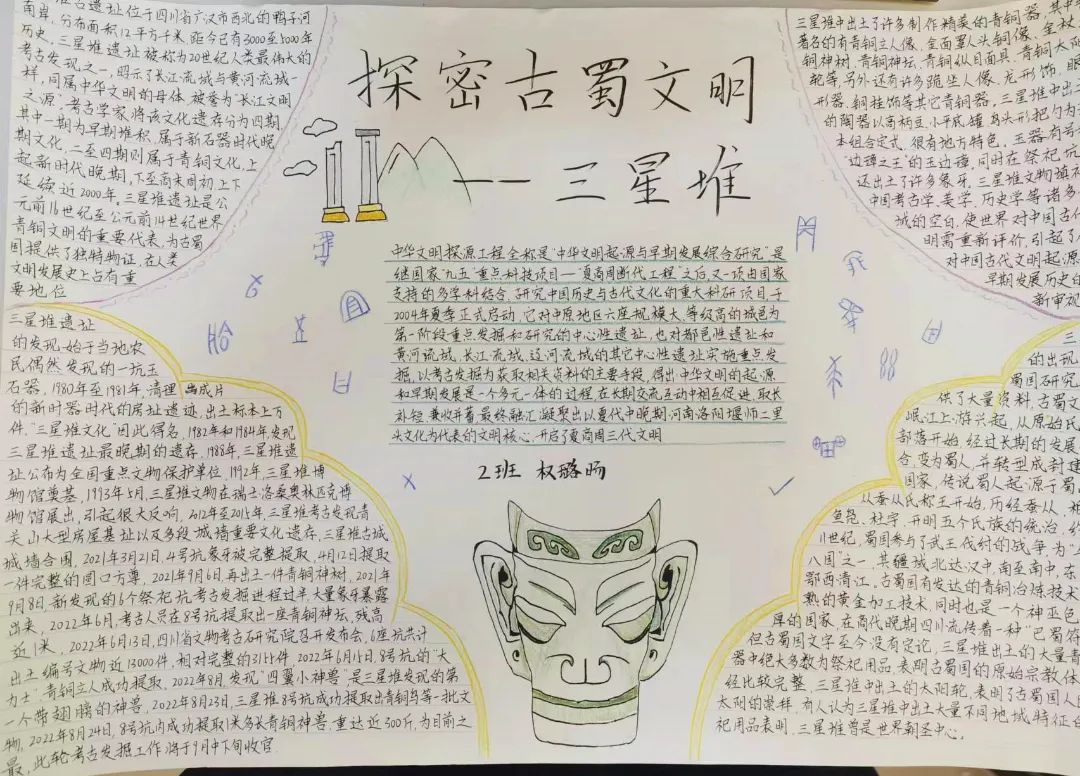 探密古蜀文明
——三星堆
堆古遗址位于四川省广汉市西北的鸭子河
南岸,分布面积12平方千米,距今已有3000至5000年
历史,三星堆遗址被称为20世纪人类最伟大的
考古发现之一,昭示了长江流域与黄河流域一
样,同属中华文明的母体,被誉为"长江文明
之源"。考古学家将该文化遗存分为四期,
其中一期为早期堆积,属于新石器时代晚
期文化,二至四期则属于青铜文化,上
起新时代晚期,下至商末周初上下
延续近2000年。三星堆遗址是公
元前16世纪至公元前14世纪世界
青铜文明的重要代表,为古蜀
国提供了独特物证,在人类
文明发展史上占有重
要地位
三星堆遗址
的发现始于当地农
民偶然发现的一坑玉
石器,1980年至1981年,清理出成片
的新时器时代的房址遗迹,出土标本上万
件,"三星堆文化"因此得名,1982年和1984年,发现
三星堆遗址最晚期的遗存,1988年,三星堆遗
址公布为全国重点文物保护单位,1992年,三星堆博
物馆奠基,1993年5月,三星堆文物在瑞士洛桑奥林匹克博
物馆展出,引起很大反响,2012年至2015年,三星堆考古发现青
关山大型房屋基址以及多段城墙重要文化遗存,三星堆古城
城墙合围,2021年3月21日,4号坑象牙被完整提取,4月12日提取
一件完整的圆口方尊,2021年9月6日,再出土一件青铜神树,2021年
9月8日,新发现的6个祭祀坑考古发掘进程过半大量象牙暴露
出来,2022年6月,考古人员在8号坑提取出一座青铜神坛,残高
近1米,2022年6月13日,四川省文物考古研究院召开发布会,6座坑共计
出土编号文物近13000件,相对完整的3155件,2022年6月15日,8号坑的"大
力士"青铜立人成功提取,2022年8月,发现"四翼小神兽"是三星堆发现的第
一个带翅膀的神兽,2022年8月23日,三星堆8号坑成功提取出青铜鸟等一批文
物,2022年8月24日,8号坑内成功提取1米多长青铜神兽,重达近300斤,为目前之
最,此轮考古发掘工作将于9月中下旬收官
中华文明探源工程全称是"中华文明起源与早期发展综合研究"是
继国家"九五"重点科技项目—"夏商周断代工程"之后,又一项由国家
支持的多学科结合,研究中国历史与古代文化的重大科研项目,于
2004年夏季正式启动,它对中原地区六座规模大,等级高的城邑为
第一阶段重点发掘和研究的中心性遗址,也对都邑性遗址和
黄河流域,长江流域,辽河流域的其它中心性遗址实施重点发
掘,以考古发掘为获取相关资料的主要手段,得出中华文明的起源
和早期发展是一个多元一体的过程,在长期交流互动中相互促进,取长
补短,兼收并蓄,最终融汇凝聚出以夏代中晚期河南洛阳堰师二里
头文化为代表的文明核心,开启了夏商周三代文明
2班 权璐旸
三星堆中出土了许多制作精美的青铜器,其中
著名的有青铜立人像,金面罩人头铜像,金杖,
铜神树,青铜神坛,青铜纵目面具,青铜太阳
轮等,另外还有许多跪坐人像,龙形饰,眼
形器,铜挂饰等其它青铜器,三星堆中出土
的陶器以高柄豆,小平底罐,鸟头形把勺为
本组合定式,很有地方特色,玉器有号
"边璋之王"的玉边璋,同时在祭祀坑
还出土了许多象牙,三星堆文物填补
中国考古学,美学,历史学等诸多
域的空白,使世界对中国古代
明需重新评价,引起了
对中国古代文明起源
早期发展历史的
新审视
三
的出现
蜀国研究
供了大量资料,古蜀文
岷江上游兴起,从原始氏
部落开始经过长期的发展
合,变为蜀人,并转型成封建
国家,传说蜀人起源于蜀
从蚕从氏称王开始,历经蚕从,柏
鱼凫,杜宇,开明五个氏族的统治,
11世纪,蜀国参与了武王伐纣的战争为
八国"之一,其疆域北达汉中,南至南中,东
鄂西清江。古蜀国有发达的青铜冶炼技术
熟的黄金加工技术,同时也是一个神巫色
厚的国家,在商代晚期四川流传着一种"巴蜀符
但古蜀国文字至今没有定论,三星堆出土的大量青
器中绝大多数为祭祀用品,表明古蜀国的原始宗教体
经比较完整,三星堆中出土的太阳轮,表明了古蜀国人
太阳的崇拜,有人认为三星堆中出土大量不同地域特征
祀用品表明,三星堆曾是世界朝圣中心。